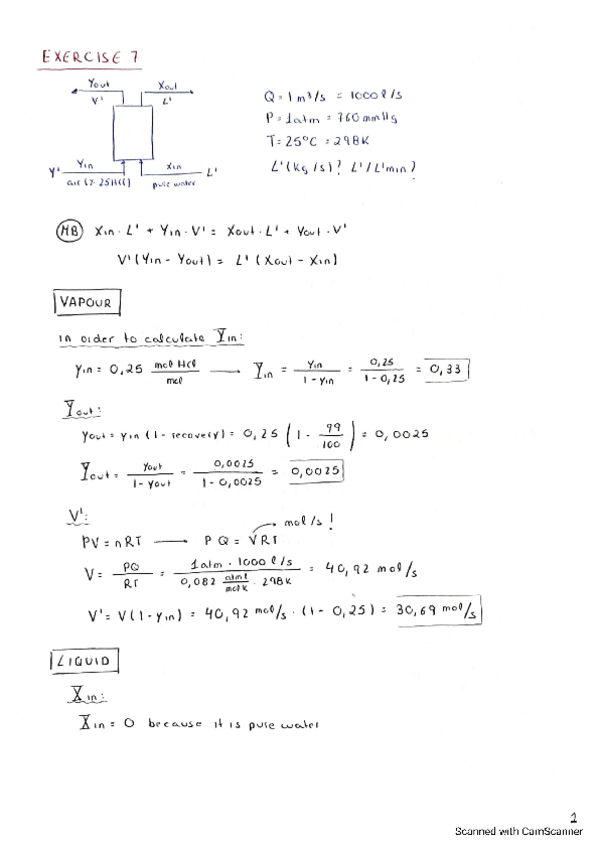 EXERCISE 7
Yout Xout
V' L'
Q = 1 m³/s = 1000 l/s
P = 1 atm = 760 mmHg
T = 25°C = 298K
L' (kg/s)? L'/L'min?
Y' Yin Xin L'
air (% 25 HCl) pure water
MB Xin · L' + Yin · V' = Xout · L' + Yout · V'
V' (Yin - Yout) = L' (Xout - Xin)
VAPOUR
in order to calculate Yin:
yin = 0,25 mol HCl / mol → Yin = yin / 1 - yin = 0,25 / 1 - 0,25 = 0,33
Yout:
yout = yin (1 - recovery) = 0,25 (1 - 99/100) = 0,0025
Yout = yout / 1 - yout = 0,0025 / 1 - 0,0025 = 0,0025
V':
mol/s!
PV = nRT → PQ = VRT
V = PQ / RT = 1atm · 1000 l/s / 0,082 atm l / mol K · 298K = 40,92 mol/s
V' = V (1 - yin) = 40,92 mol/s · (1 - 0,25) = 30,69 mol/s
LIQUID
Xin:
Xin = 0 because it is pure water
1
Scanned with CamScanner